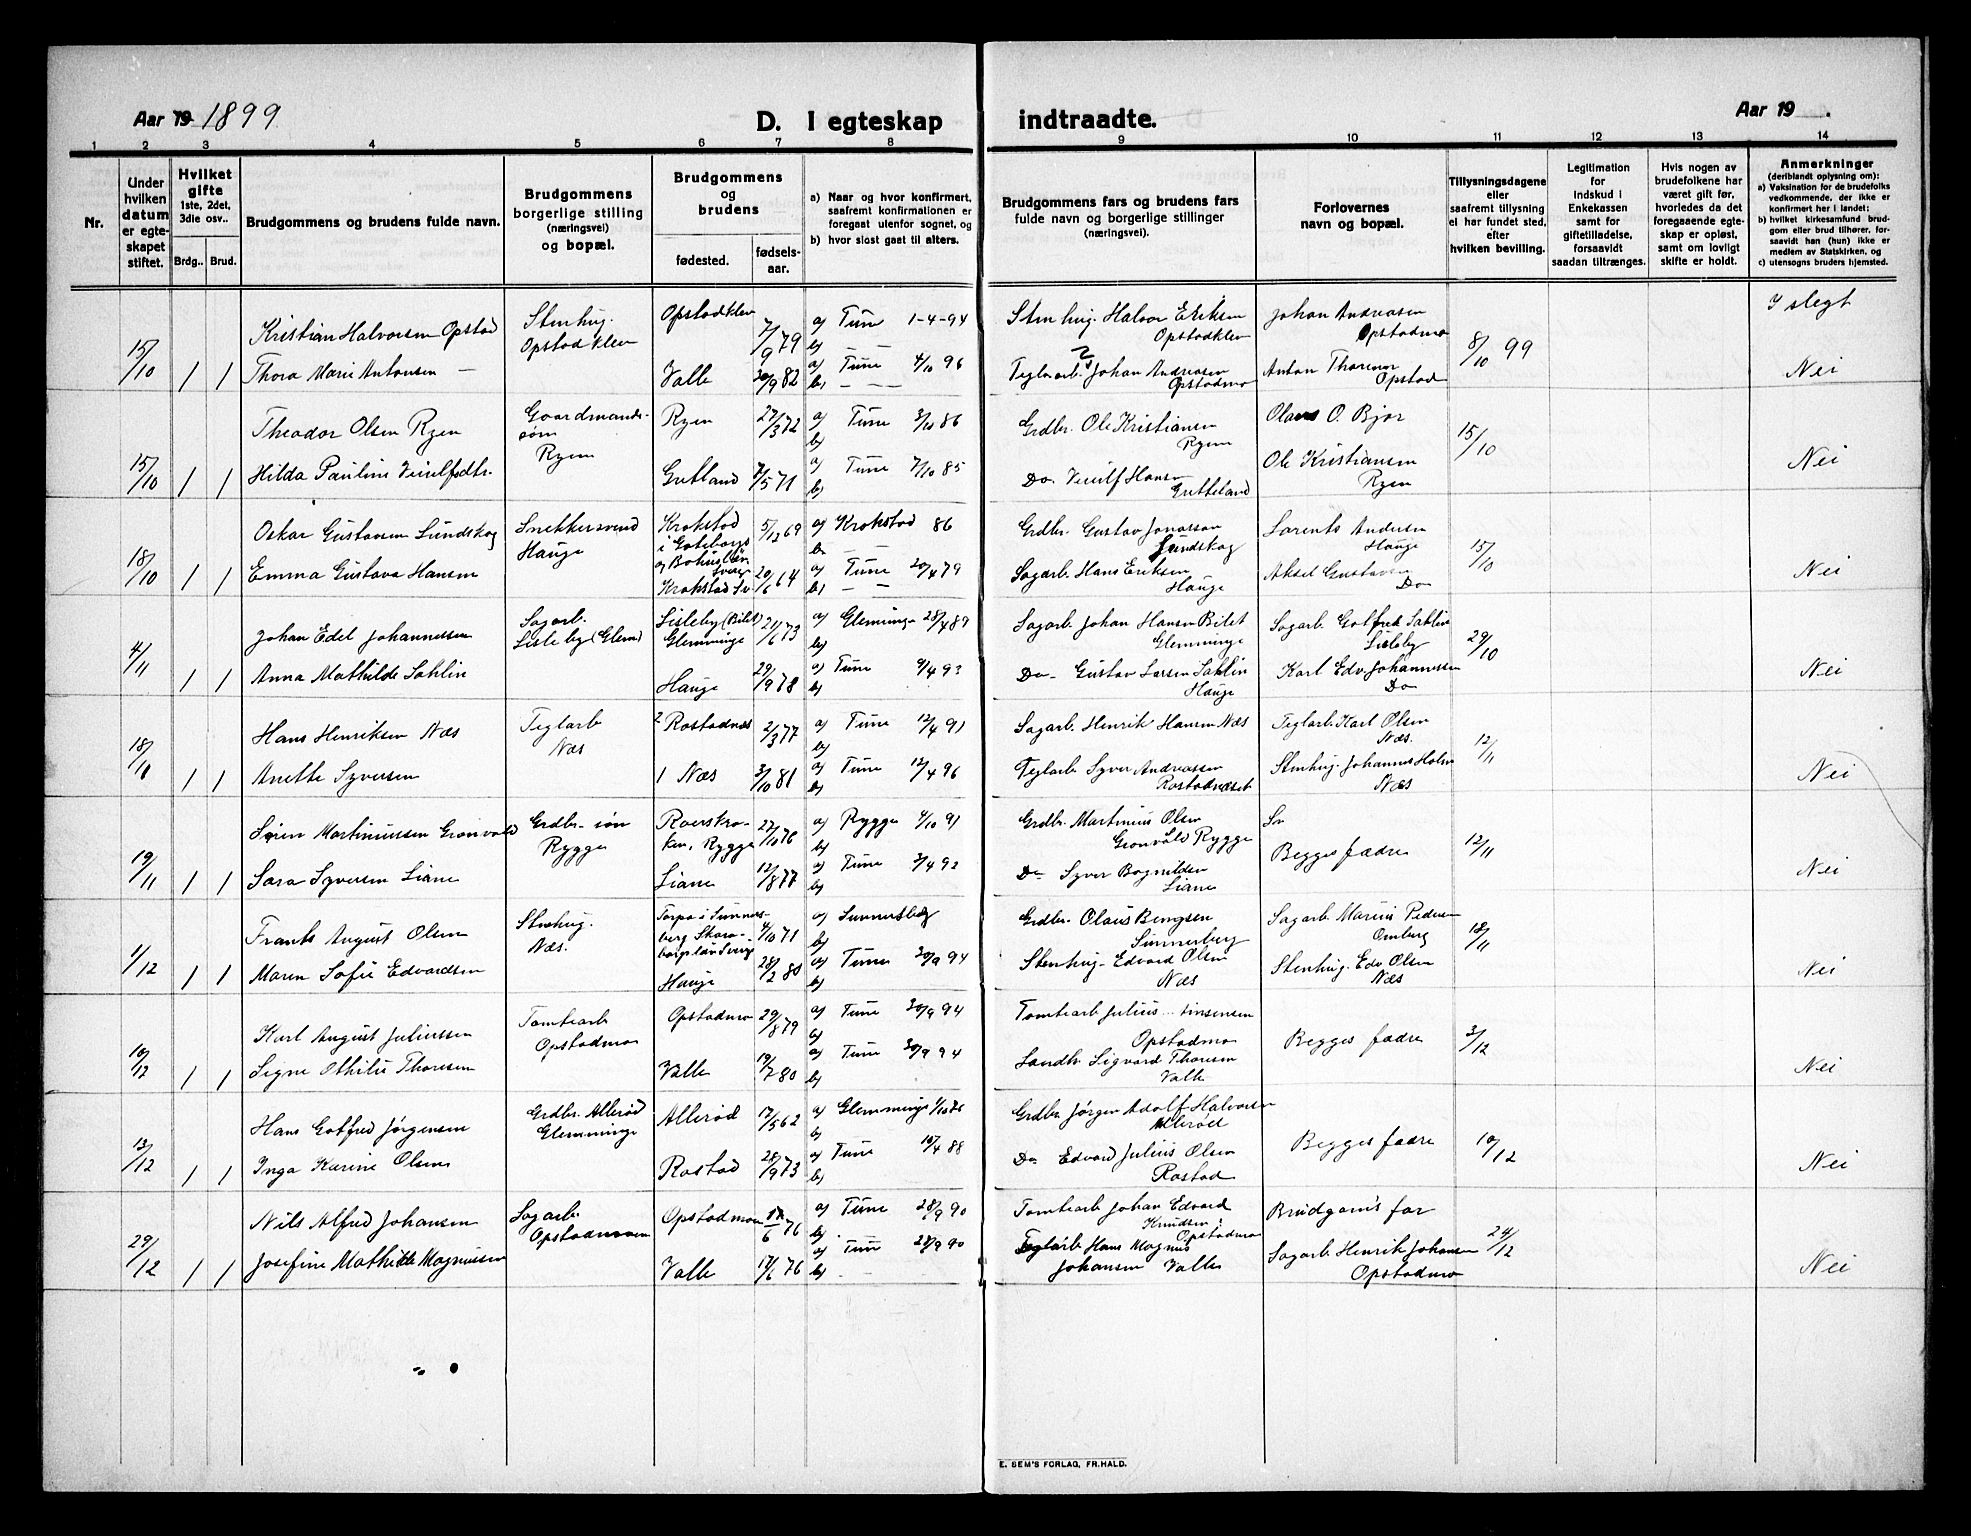 Aar 19 1899
D. I egteskap indtraadte.
Aar 19 .
1 2 3 4 5 6 7 8 9 10 11 12 13 14
Nr.
Under hvilken datum er egteskapet stiftet.
Hvilket gifte 1ste, 2det, 3die osv..
Brdg.. Brud.
Brudgommens og brudens fulde navn.
Brudgommens borgerlige stilling (næringsvei) og bopæl.
Brudgommens og brudens
fødested.
fødsels-aar.
a) Naar og hvor konfirmert, saafremt konfirmationen er foregaat utenfor sognet, og
b) hvor sidst gaat til alters.
Brudgommens fars og brudens fars fulde navn og borgerlige stillinger (næringsvei).
Forlovernes navn og bopæl.
Tillysningsdagene eller saafremt tillysning ei har fundet sted, efter hvilken bevilling.
Legitimation for indskud i Enkekassen samt for giftetilladelse, forsaavidt saadan tiltrænges.
Hvis nogen av brudefolkene har været gift før, hvorledes da det foregaaende egteskap er opløst, samt om lovligt skifte er holdt.
Anmerkninger (deriblandt oplysning om):
a) Vaksination for de brudefolks vedkommende, der ikke er konfirmert her i landet;
b) hvilket kirkesamfund brudgom eller brud tilhører, forsaavidt han (hun) ikke er medlem av Statskirken, og
c) utensogns bruders hjemsted.
15/10 1 1
Kristian Halvorsen Opstad
Thora Marie Antonsen
Stenhug. Opstadklev
Opstadklev 7/9 79
Valle 20/9 82
a) Tune 1-4-94
b) — —
a) Tune 4/10 96
b) — —
Stenhug. Halvor Eriksen
Opstadklev
Teglarb. Johan Andreasen
Opstadmo
Johan Andreasen
Opstadmo
Anton Thoresen
Opstad
8/10 99
I slegt
Nei
15/10 1 1
Theodor Olsen Ryen
Hilda Pauline
Gaardmands-
søn
Ryen
Ryen 27/3 72
Gretland 7/5 71
a) Tune 3/10 86
b)
a) Tune 7/10 85
b)
Grdbr. Ole Kristiansen
Ryen
Do. Hansen
Gretteland
Olaus O. Bjor
Ole Kristiansen
Ryen
15/10
Nei
18/10 1 1
Oskar Gustavsen Lundskog
Emma Gustava Hansen
Snekkersvend
Hauge
Krokstad
i Gøteborgs
og Bohuslän
Sverig
5/12 69
Krokstad Sv. 20/6 64
a) Krokstad 86
b — —
a) Tune 20/4 79
b) — —
Grdbr. Gustav Jonasson
Lundskog
Sagarb. Hans Eriksen
Hauge
Lorents Andersen
Hauge
Aksel Gustavsen
Do
15/10
Nei
4/11 1 1
Johan Edel Johannessen
Anna Mathilde Sahlin
Sagarb.
Lisleby (Glem)
Lisleby (Bilet)
Glemminge 21/6 73
Hauge 29/9 78
a) Glemminge 28/4 89
b)
a) Tune 9/4 93
b)
Sagarb. Johan Hansen Bilet
Glemminge
Do — Gustav Larsen Sahlin
Hauge
Sagarb. Gotfred Sahlin
Lisleby
Karl Edv. Johannessen
Do
29/10
Nei
18/11 1 1
Hans Henriksen Næs
Anette Syversen
Teglarb
Næs
2 Rostadnæs 2/3 77
1 Næs 3/10 81
a) Tune 12/4 91
b)
a) Tune 12/4 96
b)
Sagarb. Henrik Hansen Næs
Teglarb Syver Andreassen
Rostadnæset
Teglarb. Karl Olsen
Næs.
Stenhug. Johannes Holm
Næs
12/11
Nei
19/11 1 1
Søren Martinussen Grønvold
Sara Syversen Liane
Grdbr. søn
Rygge
Roerskro-
ken, Rygge 27/10 76
Liane 12/8 77
a) Rygge 4/10 91
b)
a) Tune 3/4 92
b)
Grdbr. Martinius Olsen
Grønvold Rygge
Do Syver Bognilden
Liane
Begges fædre
12/11
Nei
1/12 1 1
Frants August Olsen
Maren Sofie Edvardsen
Stenhug.
Næs.
Torpa i Sunners-
berg Skara-
borglän Sverige 4/10 71
Hauge 28/2 80
a) Sunnersberg
b)
a) Tune 30/9 94
b)
Grdbr. Olaus Bengsen
Sunnerberg
Stenhug. Edvard Olsen
Næs
Sagarb. Marius Pedersen
Omberg
Stenhug. Edv Olsen
Næs
18/11
Nei
10/12 1 1
Karl August Juliussen
Signe Othilie Thoresen
Tomtearb
Opstadmo
Opstadmo 29/8 79
Valle 19/7 80
a) Tune 30/9 94
b)
a) Tune 30/9 94
b)
Tomtearb Julius
Opstadmo
Landbr. Sigvard Thoresen
Valle
Begges fædre
3/12
Nei
13/12 1 1
Hans Gotfred Jørgensen
Inga Karine Olsen
Grdbr. Allerød
Glemminge
Allerød 17/5 62
Rostad 28/9 73
a) Glemminge
b)
a) Tune 15/4 88
b)
Grdbr. Jørgen Adolf Halvorsen
Allerød
Do Edvard Julius Olsen
Rostad
Begges fædre
10/12
Nei
29/12 1 1
Nils Alfred Johansen
Josefine Mathilde Magnussen
Sagarb.
Opstadmoen
Opstadmoen 6 76
Valle 17/6 76
a) Tune 28/9 90
b)
a) Tune 28/9 90
b) — —
Tomtearb Johan Edvard
Knudsen
Opstadmo
Teglarb Hans Magnus
Johansen Valle
Brudgoms far
Sagarb Henrik Johansen
Opstadmo
24/12
Nei
E. SEM'S FORLAG, FR.HALD.